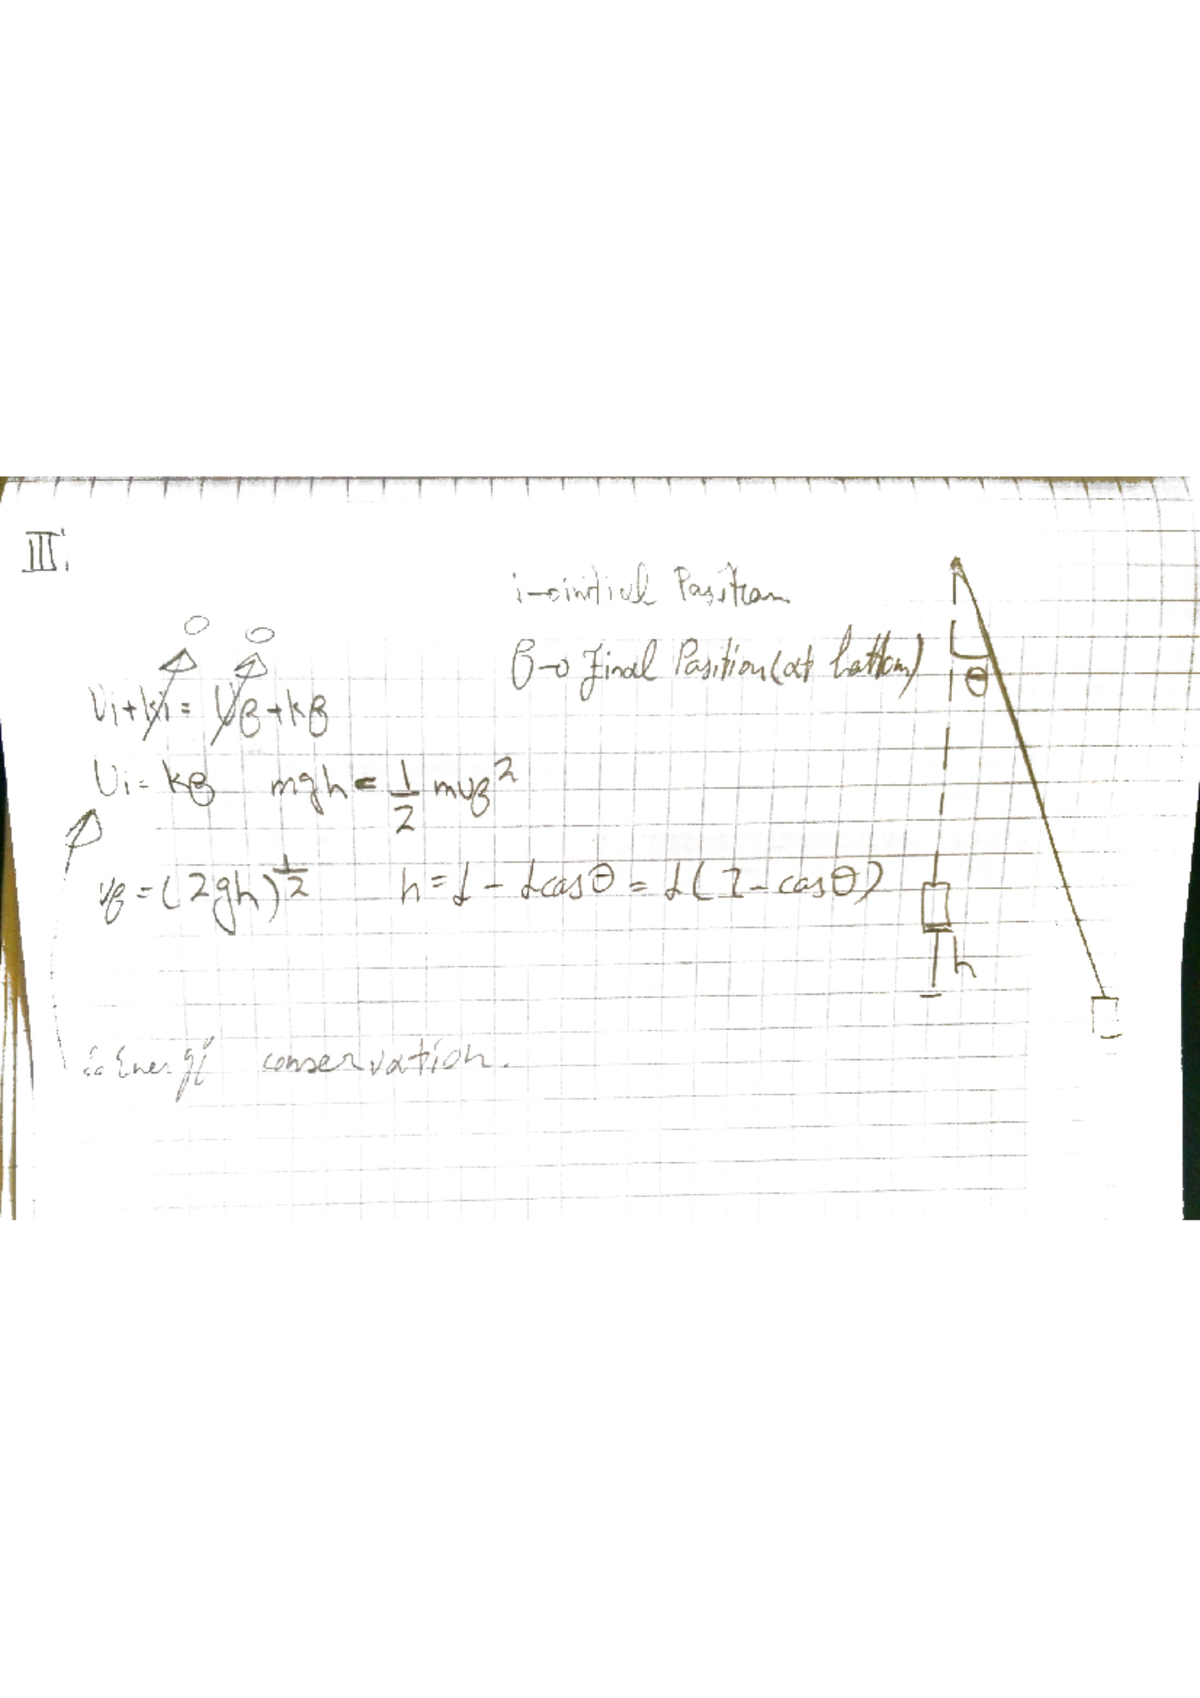 III.
i→initial Position
β→Final Position(at bottom)
0 0
Ui+ki=Uβ+kβ
θ
Ui=kβ mgh=1/2 mvβ²
vβ=(2gh)^1/2 h=L-Lcosθ=L(1-cosθ)
h
Energy conservation.